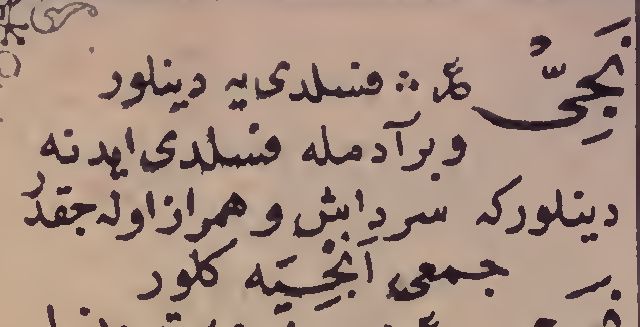 نَجِيٌّ ع ∴ فسلدى يه دينلور
و بر آدمله فسلدى ايدنه
دينلور كه سرداش و همراز اوله جقدر
جمعى اَنْجِيَه كلور